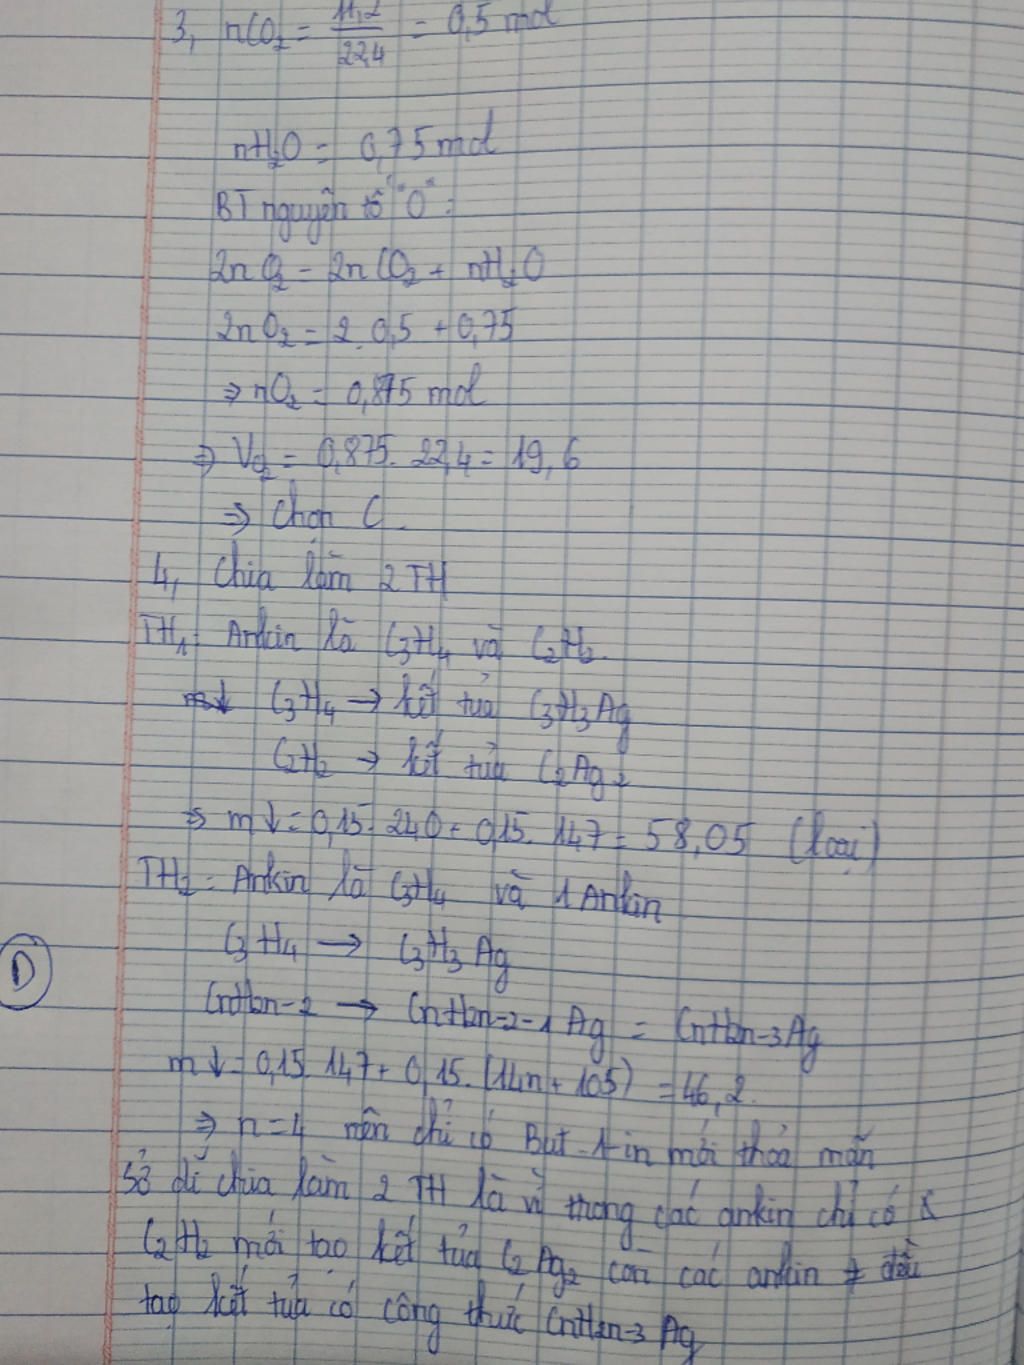 3, nCO₂ = 11,2/22,4 = 0,5 mol
nH₂O = 0,75 mol
BT nguyên tố "O":
2nO₂ = 2nCO₂ + nH₂O
2nO₂ = 2.0,5 + 0,75
⇒ nO₂ = 0,875 mol
⇒ VO₂ = 0,875. 22,4 = 19,6
⇒ Chọn C.
4, Chia làm 2 TH
TH₁: Ankin là C₃H₄ và C₂H₂.
C₃H₄ → kết tủa C₃H₃Ag
C₂H₂ → kết tủa C₂Ag₂
⇒ m↓ = 0,15. 240 + 0,15. 147 = 58,05 (loại)
TH₂: Ankin là C₃H₄ và 1 Ankin
C₃H₄ → C₃H₃Ag
D
CnH2n-2 → CnH2n-2-1 Ag = CnH2n-3Ag
m↓ = 0,15. 147 + 0,15. (14n + 105) = 46,2.
⇒ n=4 nên chỉ có But-1-in mới thỏa mãn
Sở dĩ chia làm 2 TH là vì trong các ankin chỉ có
C₂H₂ mới tạo kết tủa C₂Ag₂ còn các ankin ≠ đều
tạo kết tủa có công thức CnH2n-3 Ag